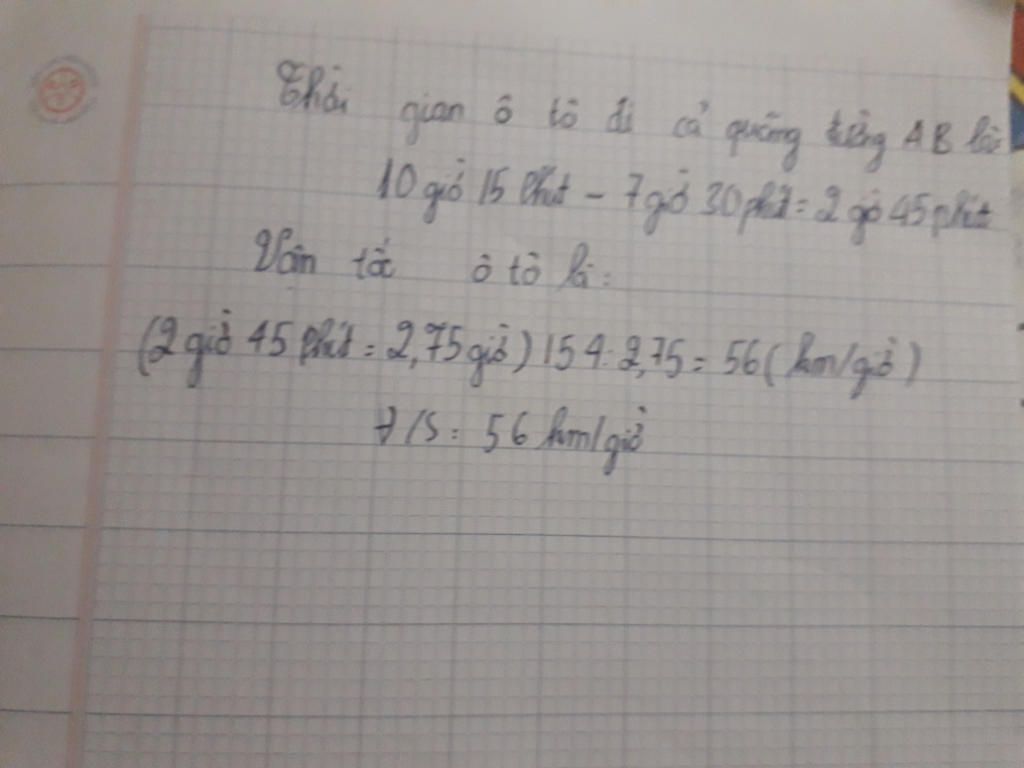 Thời gian ô tô đi cả quãng đường AB là
10 giờ 15 phút - 7 giờ 30 phút = 2 giờ 45 phút
Vận tốc ô tô là:
(2 giờ 45 phút = 2,75 giờ) 154 : 2,75 = 56 (km/giờ)
Đ/S: 56 km/giờ